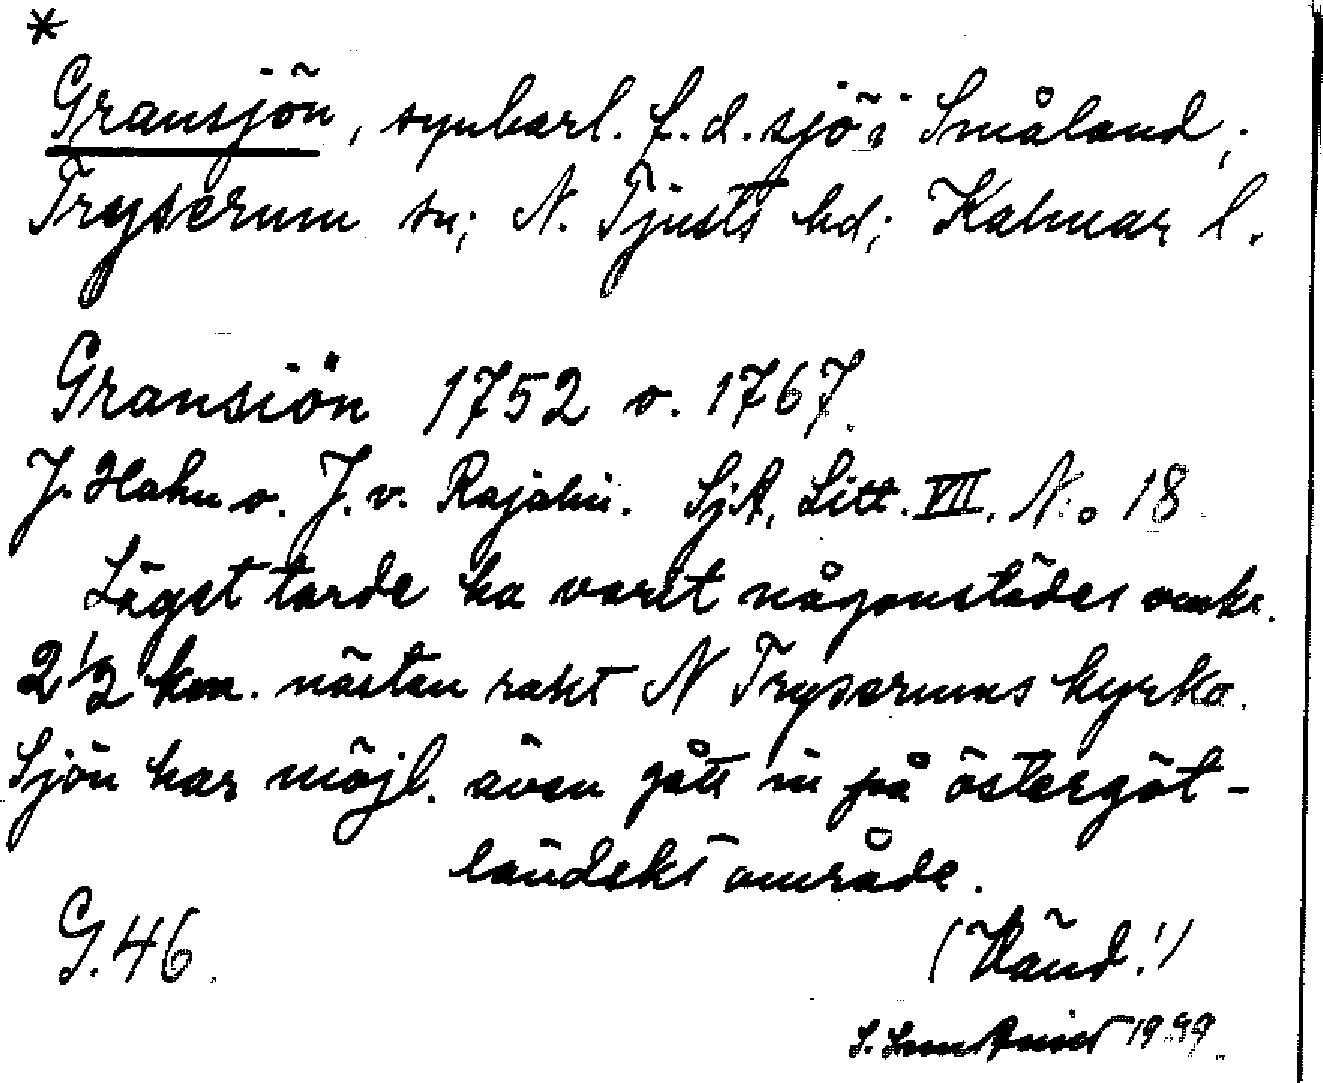 *
Gransjön, synbarl. f.d. sjö i Småland;
Tryserum sn; N. Tjusts hd; Kalmar l.
Gransiön 1752 o. 1767.
J. Hahn o. J. v. Rajalin. SjA, Litt. VII. N:o 18
Läget torde ha varit någonstädes omkr.
2 1/2 km. nästan rakt N Tryserums kyrka.
Sjön har möjl. även gått in på östergöt-
ländskt område.
G. 46.
(Vänd!)
S. 1949